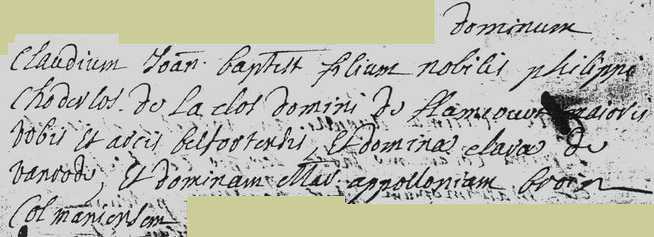 dominum
Claudium Joān. baptist filium nobilis philippi
Choderlos de La clos domini de flamecourt maioris
vrbis et arcis belfortensis, et dominæ claræ de
vanvode, et dominam Mar. appolloniam broin
Colmariensem